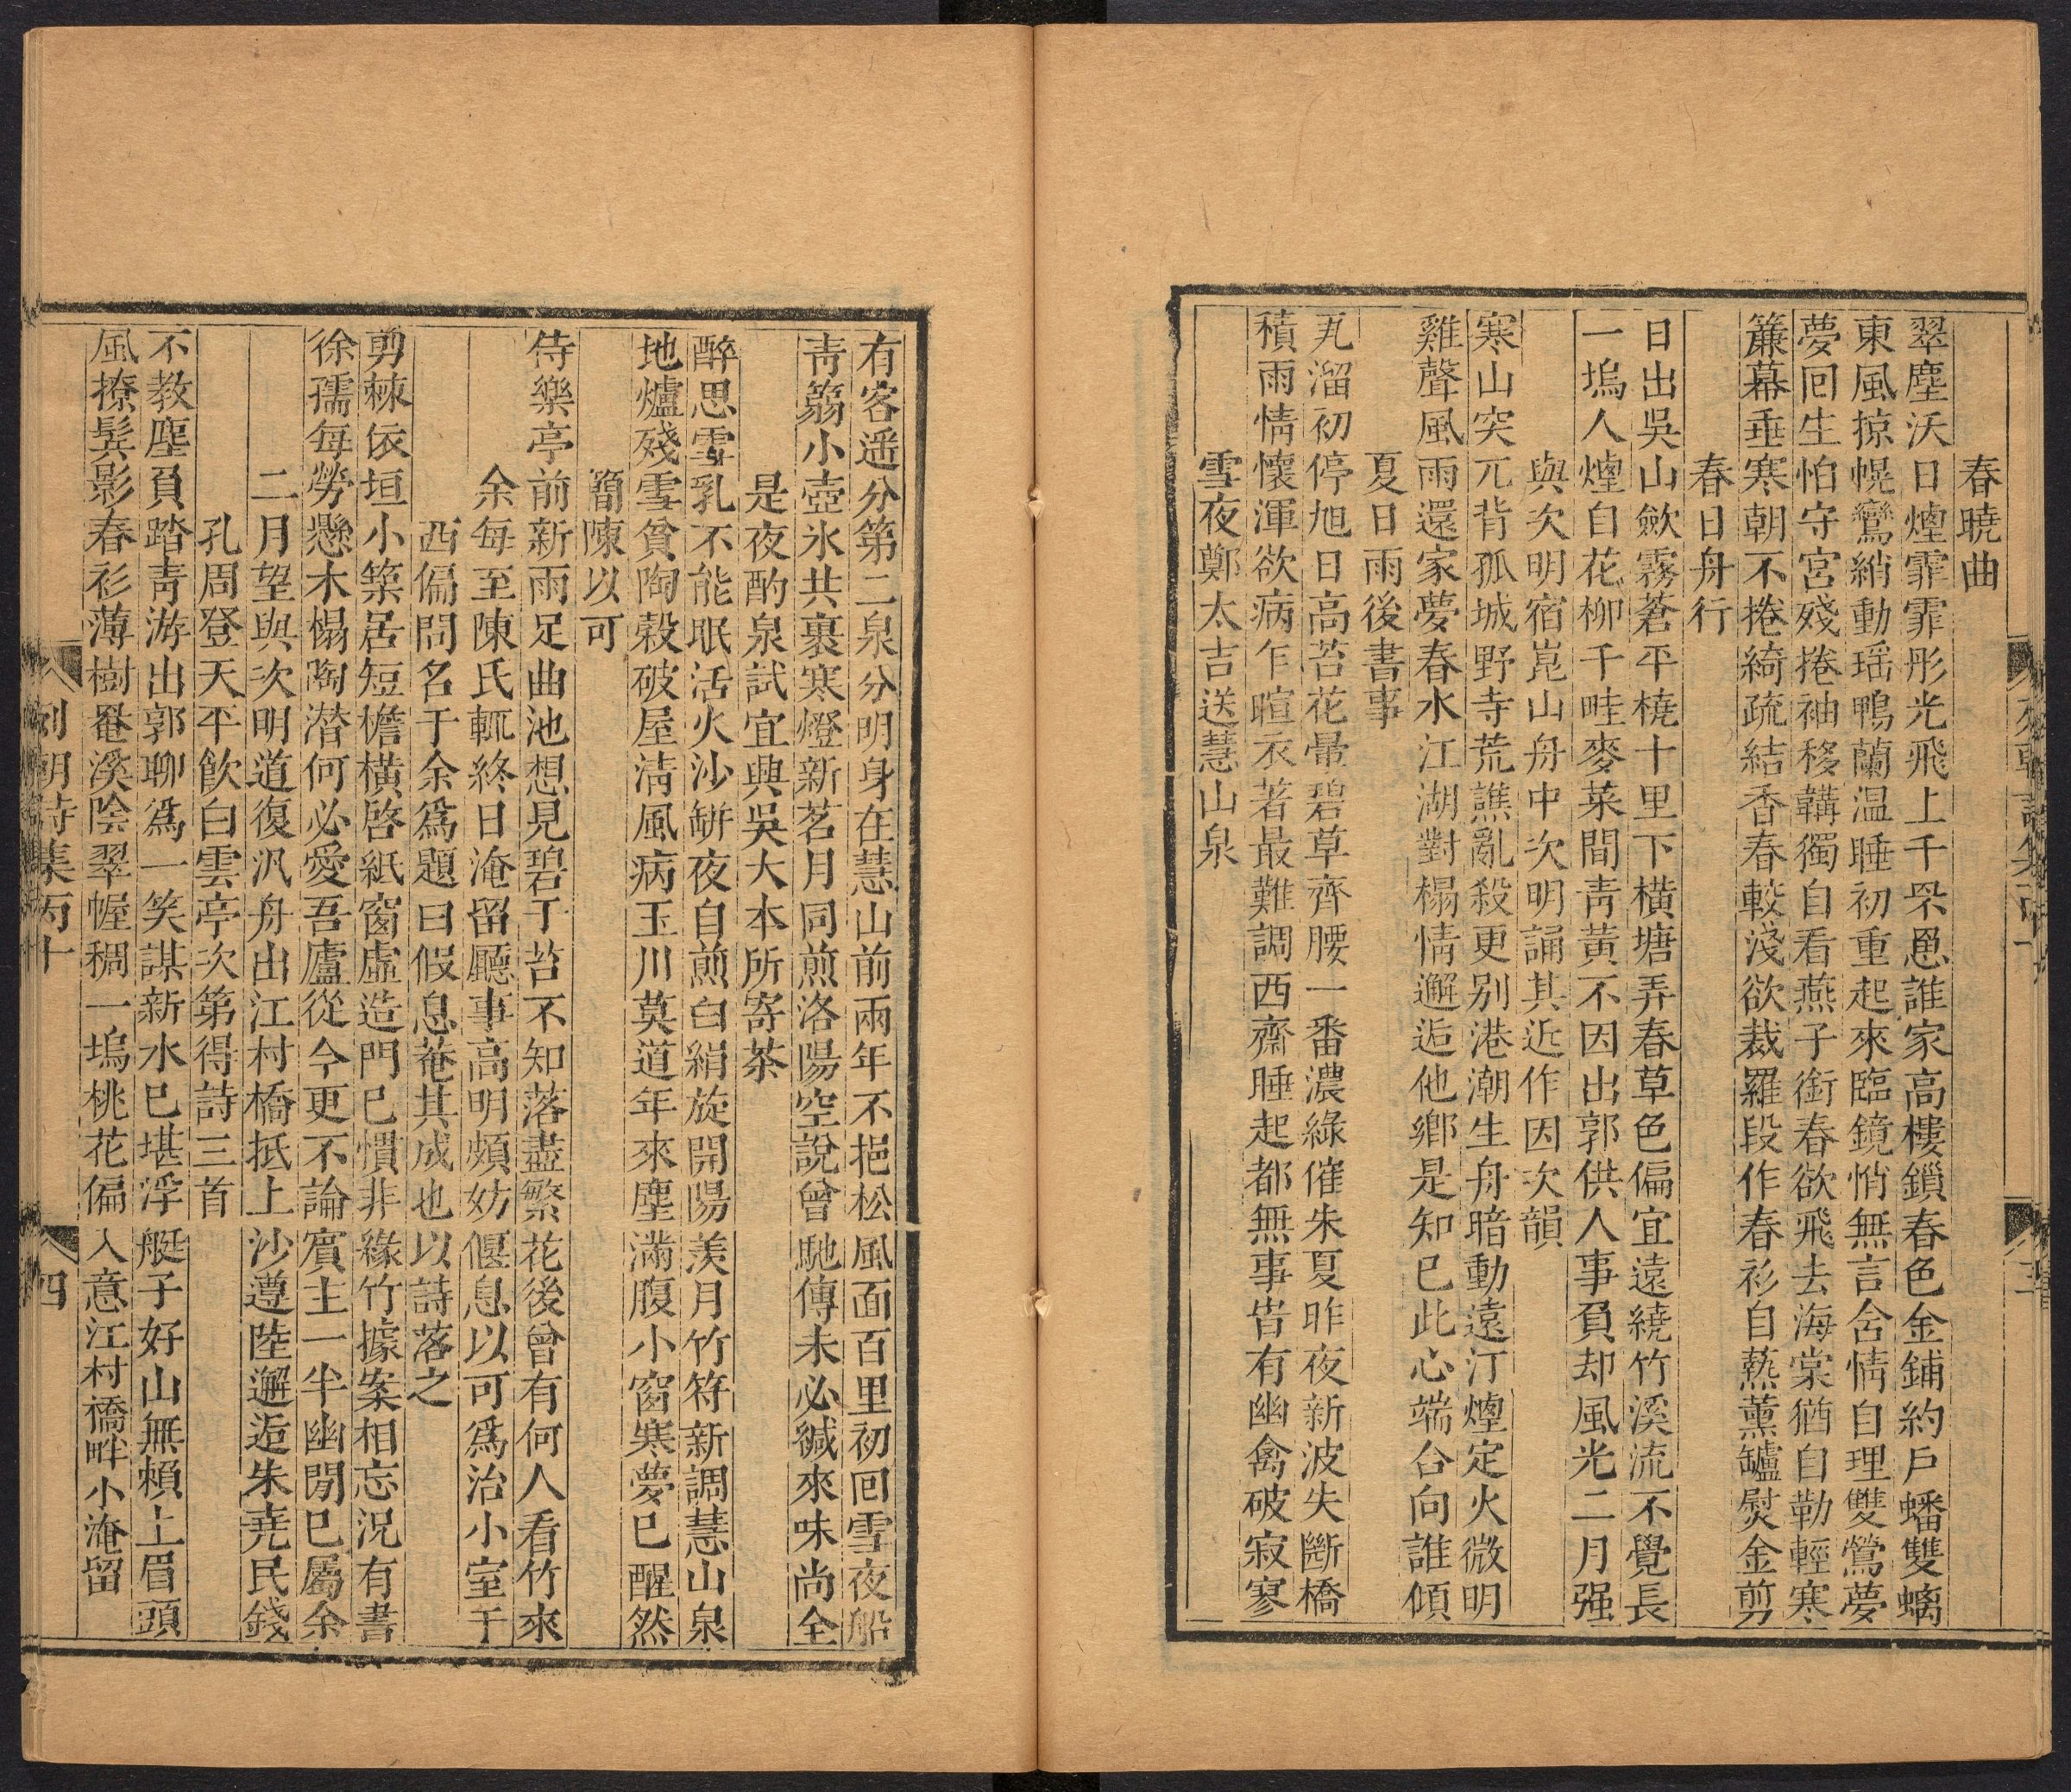 春曉曲
翠塵沃日煙霏霏彤光飛上千罘罳誰家高樓鎖春色金鋪約戶蟠雙螭
東風掠幌鸞綃動瑶鴨蘭温睡初重起來臨鏡悄無言含情自理雙鶯夢
夢回生怕守宮殘捲袖移鞲獨自看燕子銜春欲飛去海棠猶自勒輕寒
簾幕垂寒朝不捲綺疏結香春較淺欲裁羅段作春衫自爇薰鑪熨金剪
春日舟行
日出吳山歛霧蒼平橈十里下橫塘弄春草色偏宜遠繞竹溪流不覺長
一塢人煙自花柳千畦麥菜間靑黃不因出郭供人事負却風光二月强
與次明宿崑山舟中次明誦其近作因次韻
寒山突兀背孤城野寺荒譙亂殺更别港潮生舟暗動遠汀煙定火微明
雞聲風雨還家夢春水江湖對榻情邂逅他鄉是知已此心端合向誰傾
夏日雨後書事
瓦溜初停旭日高苔花暈碧草齊腰一番濃綠催朱夏昨夜新波失斷橋
積雨情懷渾欲病乍暄衣著最難調西齋睡起都無事皆有幽禽破寂寥
雪夜鄭太吉送慧山泉
有客遥分第二泉分明身在慧山前兩年不挹松風面百里初回雪夜船
靑蒻小壺氷共裹寒燈新茗月同煎洛陽空說曾馳傳未必緘來味尚全
是夜酌泉試宜興吳大本所寄茶
醉思雪乳不能眠活火沙缾夜自煎白絹旋開陽羨月竹符新調慧山泉
地爐殘雪貧陶穀破屋清風病玉川莫道年來塵滿腹小窗寒夢已醒然
簡陳以可
侍樂亭前新雨足曲池想見碧于苔不知落盡繁花後曾有何人看竹來
余每至陳氏輒終日淹留廳事高明頗妨偃息以可爲治小室于
西偏問名于余爲題曰假息菴其成也以詩落之
剪棘依垣小築居短檐橫啓紙窗虛造門已慣非緣竹據案相忘況有書
徐孺每勞懸木榻陶潛何必愛吾廬從今更不論賓主一半幽閒已屬余
二月望與次明道復汎舟出江村橋抵上沙遵陸邂逅朱堯民錢
孔周登天平飮白雲亭次第得詩三首
不教塵負踏靑游出郭聊爲一笑謀新水已堪浮艇子好山無賴上眉頭
風撩鬓影春衫薄樹罨溪陰翠幄稠一塢桃花偏入意江村橋畔小淹留
列朝詩集丙十
四